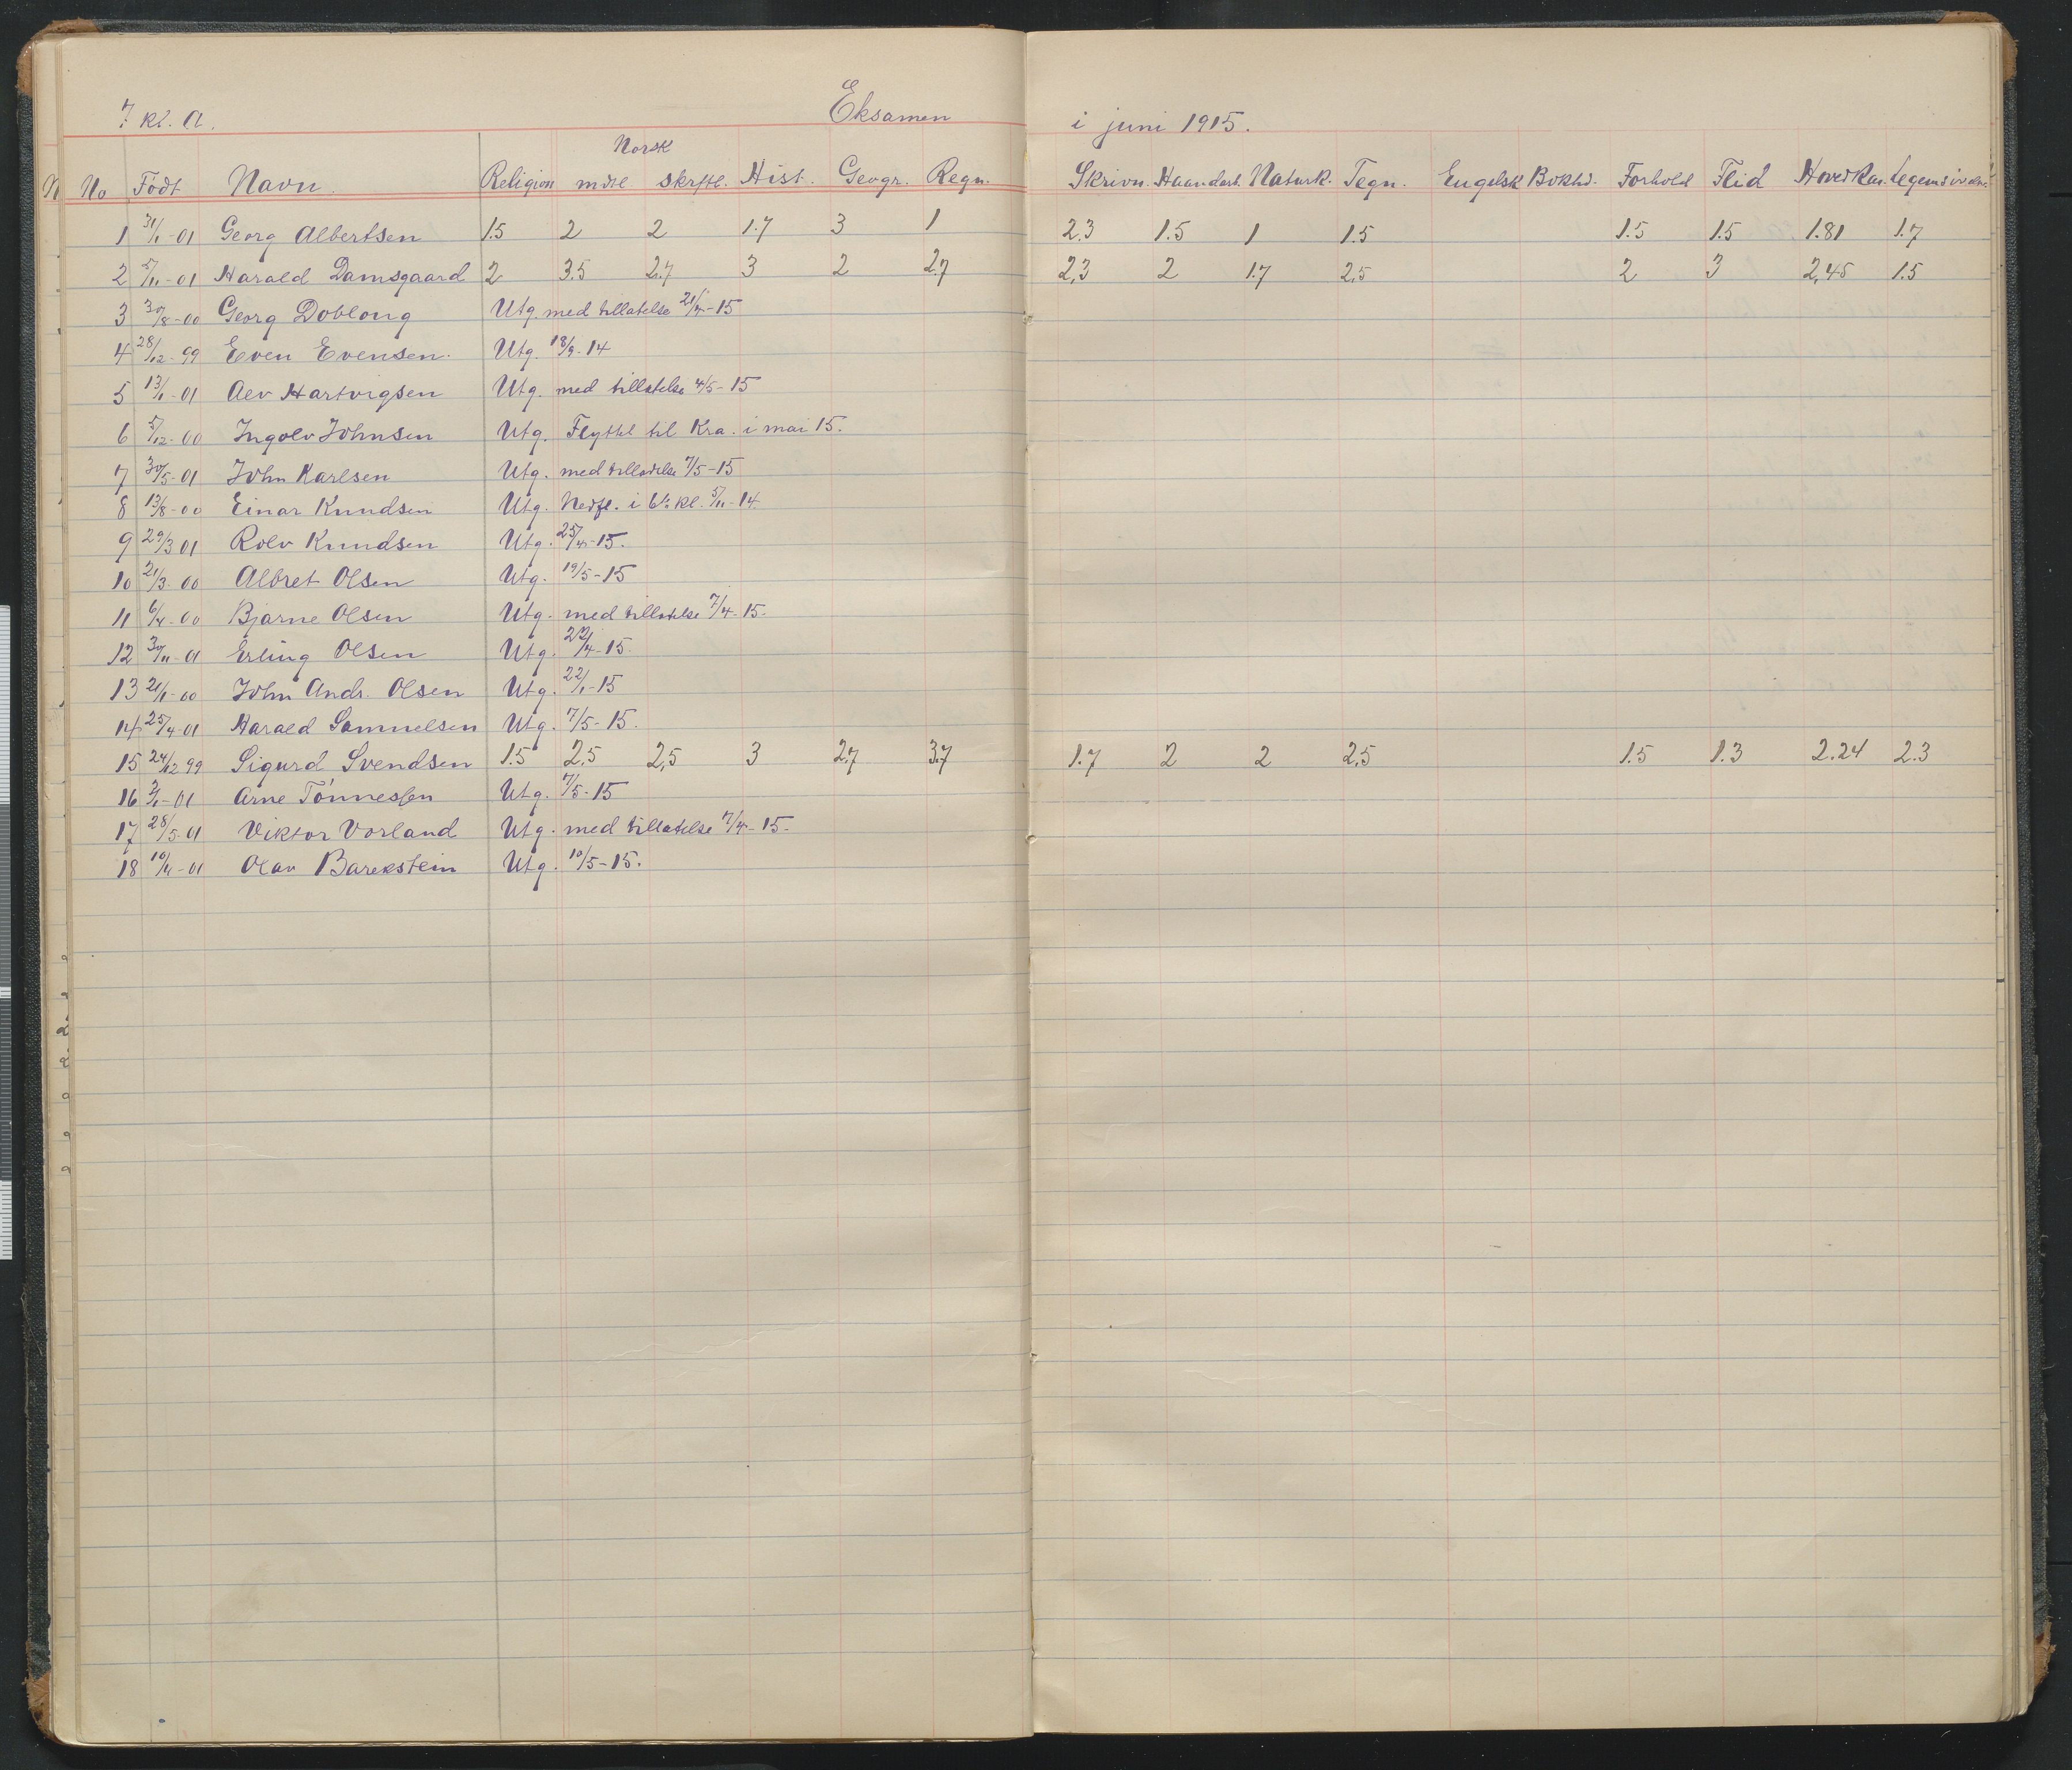 7 kl. a. Eksamen i juni 1915.
Norsk
No Født Navn. Religion mdtl. skrftl. Hist. Geogr. Regn. Skrivn. Haandarb. Naturk. Tegn. Engelsk Bokhd. Forhold Flid Hovedkar. Legemsøveln.
1 31/1-01 Georg Albertsen 1.5 2 2 1.7 3 1 2.3 1.5 1 1.5 1.5 1.5 1.81 1.7
2 5/11-01 Harald Damsgaard 2 3.5 2.7 3 2 2.7 2,3 2 1.7 2,5 2 3 2,45 1.5
3 30/8-00 Georg Doblong Utg. med tillatelse 21/4-15
4 28/12-99 Even Evensen. Utg. 18/9-14
5 13/1-01 Alv Hartvigsen Utg. med tillatelse 4/5-15
6 5/12-00 Ingolv Johnsen Utg. Flyttet til Kra. i mai 15.
7 30/5-01 John Karlsen Utg. med tillatelse 7/5-15
8 13/8-00 Einar Knudsen Utg. Nedfl. i 6te kl. 5/11-14.
9 29/3 01 Rolv Knudsen Utg. 25/4-15.
10 21/3-00 Albret Olsen Utg. 19/5-15
11 6/4-00 Bjarne Olsen Utg. med tillatelse 7/4-15.
12 30/11-01 Erling Olsen Utg. 22/4-15.
13 21/1-00 John Andr. Olsen Utg. 22/1-15
14 25/4-01 Harald Samuelsen Utg. 7/5-15.
15 24/12 99 Sigurd Svendsen 1.5 2,5 2,5 3 2.7 3.7 1.7 2 2 2,5 1.5 1.3 2.24 2.3
16 2/1-01 Arne Tønnessen Utg. 7/5-15
17 28/5-01 Viktor Vorland Utg. med tillatelse 7/4-15.
18 10/4-01 Olav Barekstein Utg. 10/5-15.